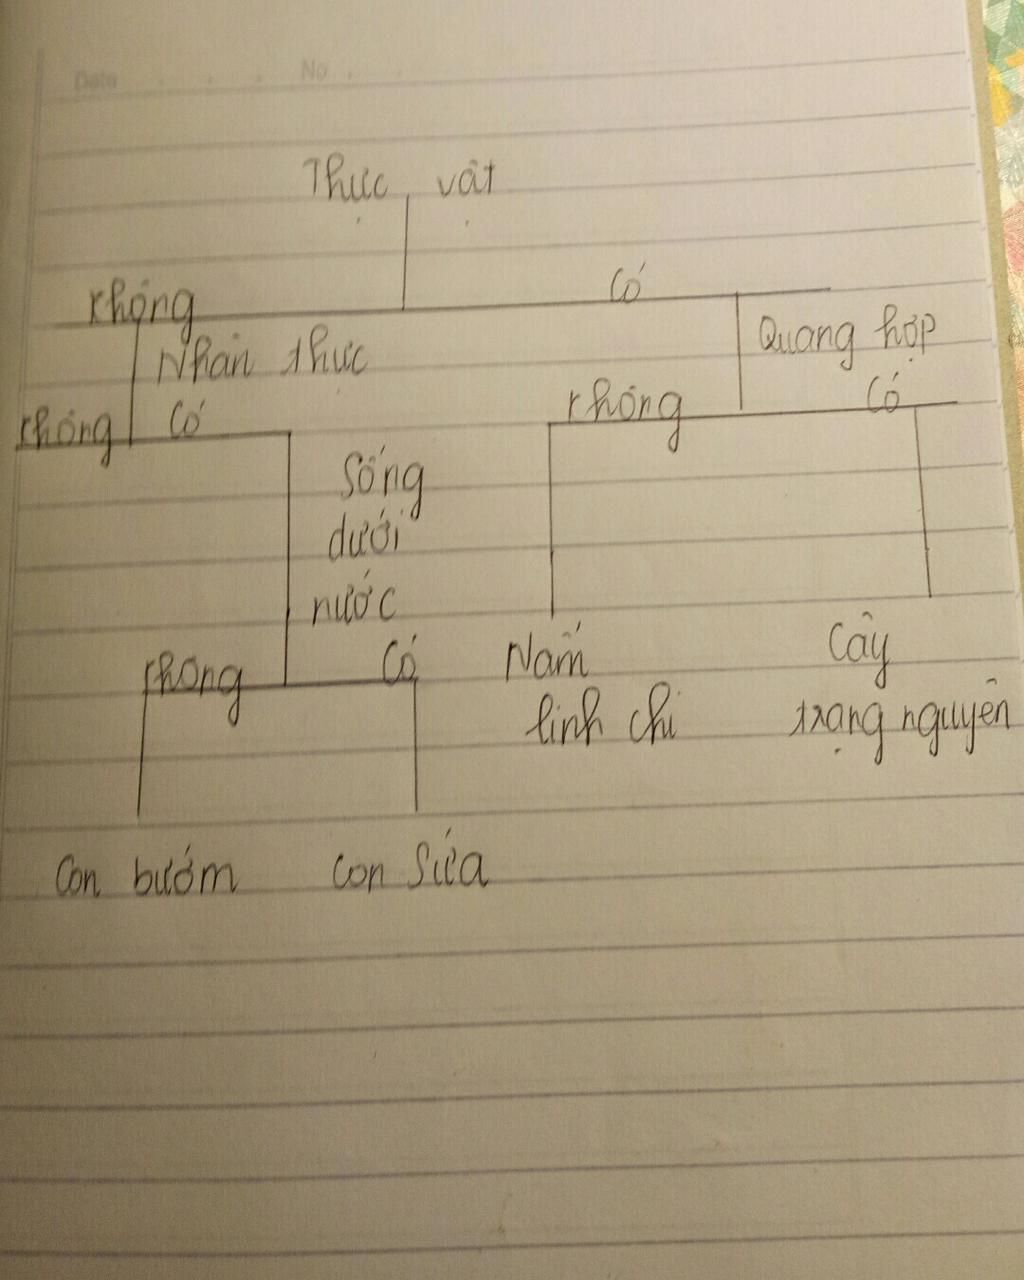 Date No
Thực vật
Không Có
Nhân thức Quang hợp
Không Có Không Có
Sống
dưới
nước
Không Có
Nấm Cây
linh chi trạng nguyên
Con bướm Con Sứa